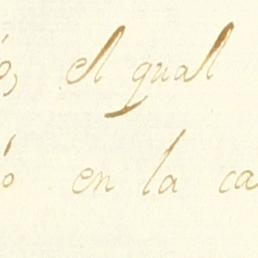 ó, el qual
ó en la ca